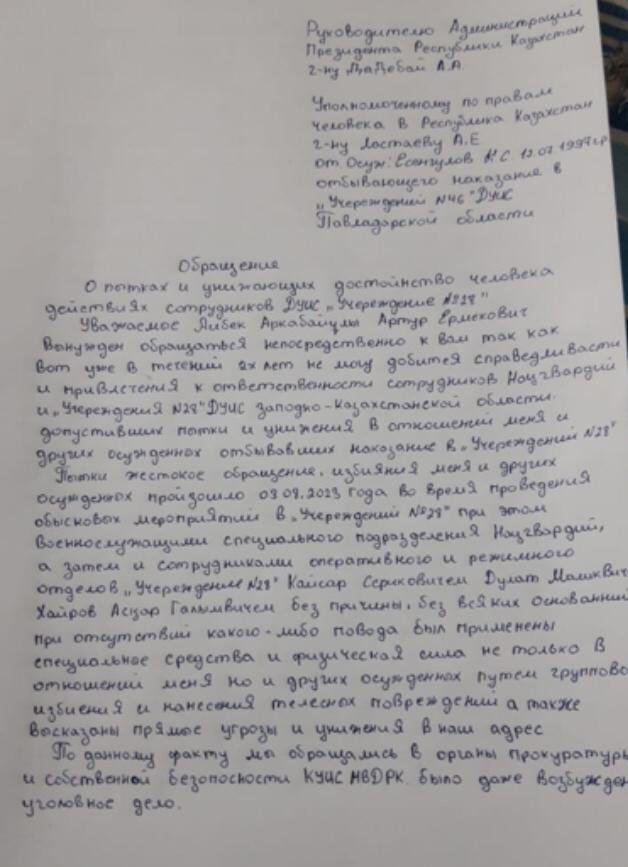 Руководителю Администраций
Президента Республики Казахстан
г-ну ДаДебай А.А.
Уполномоченному по правам
человека в Республика Казахстан
г-ну Ластаеву А.Е
от Осуж: Есенгулов К.С. 12.07.1997гр
отбывающего наказание в
„Учереждений N46" ДУИС
Павладарской области
Обращения
О пытках и унижающих достойнство человека
действиях сотрудников ДУИС „Учереждение №28"
Уважаемое Айбек Аркабайұлы Артур Ермекович
Вынужден обращаться непосредственно к вам так как
Вот уже в течений 2х лет не могу добится справедливасти
и привлечения к ответственности сотрудников Нацгвардий
и „Учереждения N28" ДУИС западно-Казахстанской области.
допустивших пытки и унижения в отношений меня и
других осужденных отбывавших наказание в „Учереждений N28"
Пытки жестокое обращение, избияния меня и других
осужденных произошло 03.08.2023 года во время проведения
обысковых мероприятий в „Учереждений №28" при этом
военнослужащими специального подразделения Нацгвардий,
а затем и сотрудниками оперативного и режимного
отделов „Учереждение N28" Кайсар Сериковичем Дулат Маликвич
Хайров Асқар Галымвичем без причины, без всяких основанний
при отсутствий какого-либо повода был применены
специальное средства и физическая сила не только в
отношений меня но и других осужденнах путем группово
избиения и нанесения телесных повреждений а также
высказаны прямые угрозы и унижения в наш адрес
По данному факту мы обращались в органы прокуратуры
и собственной безопосности КУИС МВДРК. было даже возбужден
уголовное дело.